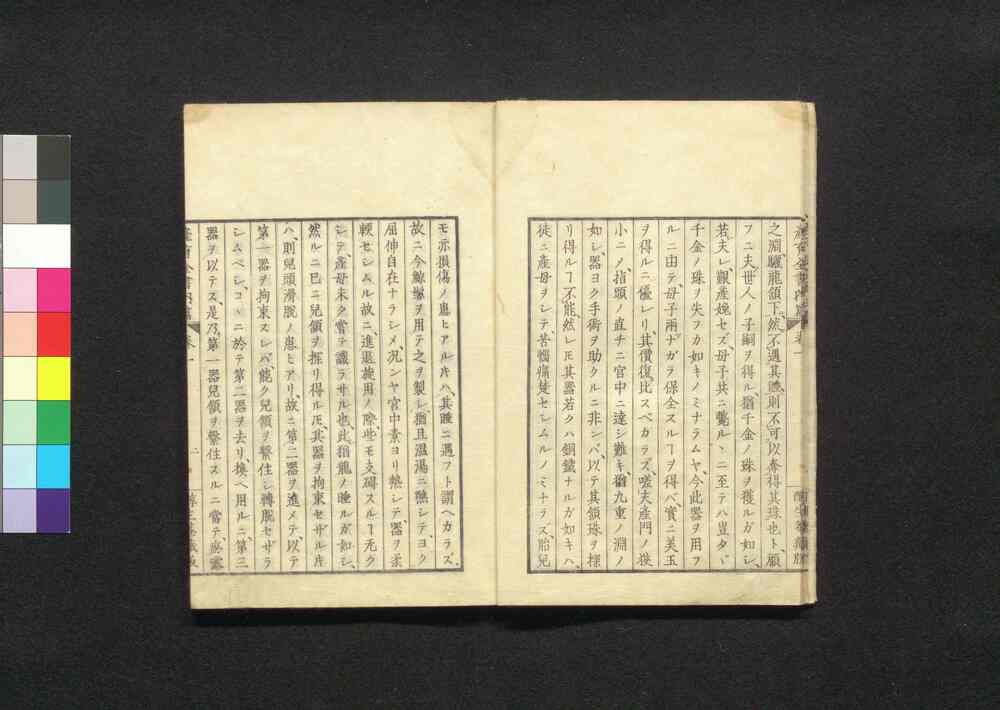 之淵、驪龍頷下、然不遇其睡、則不可以奪得其珠也ト、顧
フニ夫世人ノ子嗣ヲ得ル、猶千金ノ珠ヲ獲ルガ如シ、
若夫レ、難產娩セズ、母子共ニ斃ルヽニ至テハ豈タヾ
千金ノ珠ヲ失フカ如キノミナラムヤ、今此器ヲ用フ
ルニ由テ、母子兩ナガラ保全スルヿヲ得バ、實ニ美玉
ヲ得ルニ優レリ、其價復比スベカラズ、嗟夫產門ノ狹
小ニメ、指頭ノ直チニ宮中ニ達シ難キ、猶九重ノ淵ノ
如シ、器ヨク手術ヲ助クルニ非ンバ、以テ其頷珠ヲ探
リ得ルヿ不能、然レ𪜈其器若クハ銅鐵ナルガ如キハ、
徒ニ產母ヲシテ、苦惱痛楚セシムルノミナラズ、胎兒
モ亦損傷ノ患ヒアル𪜈ハ、其睡ニ遇フト謂ヘカラズ、
故ニ今鯨鬚ヲ用テ之ヲ製シ、猶且溫湯ニ醮シテ、ヨク
屈伸自在ナラシメ、况ンヤ宮中素ヨリ熱シテ、器ヲ柔
輭セシムル故ニ、進退施用ノ際、些モ支碍スルヿ无ク
シテ、產母未タ嘗テ識ラサル也、此猶龍ノ睡ルガ如シ、
然ルニ已ニ兒頷ヲ探リ得ル𪜈、其器ヲ拘束セザル𪜈
ハ、則兒頭滑脫ノ患ヒアリ、故ニ第二器ヲ進メテ、以テ
第一器ヲ拘束スレバ、能ク兒頷ヲ繫住シ、轉脫セザラ
シムベシ、コヽニ於テ第二器ヲ去リ、換ヘ用ルニ、第三
器ヲ以テス、是乃第一器兒頷ヲ繫住スルニ當テ、